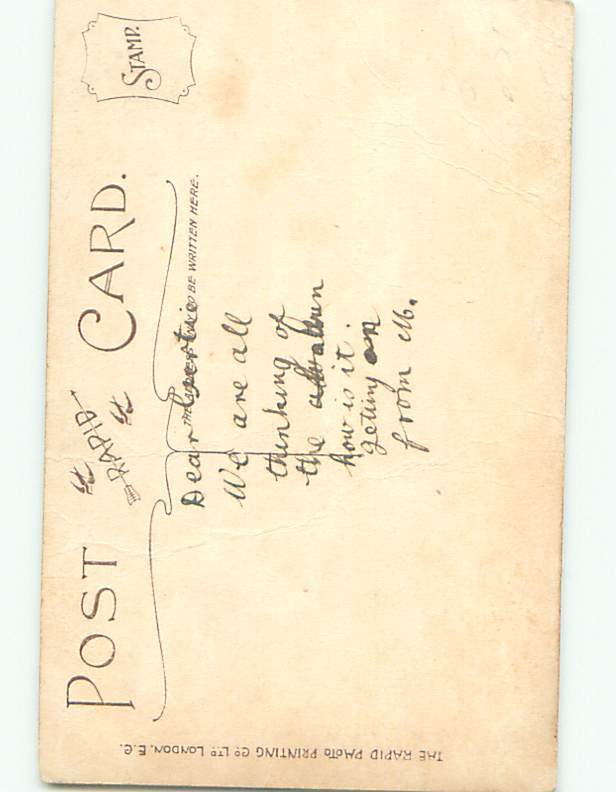 POST CARD.
RAPID
STAMP.
TO BE WRITTEN HERE.
Dear Gertie
We are all
thinking of
the album
how is it.
getting on
from M.
THE RAPID PHOTO PRINTING CO LTD LONDON, E.C.